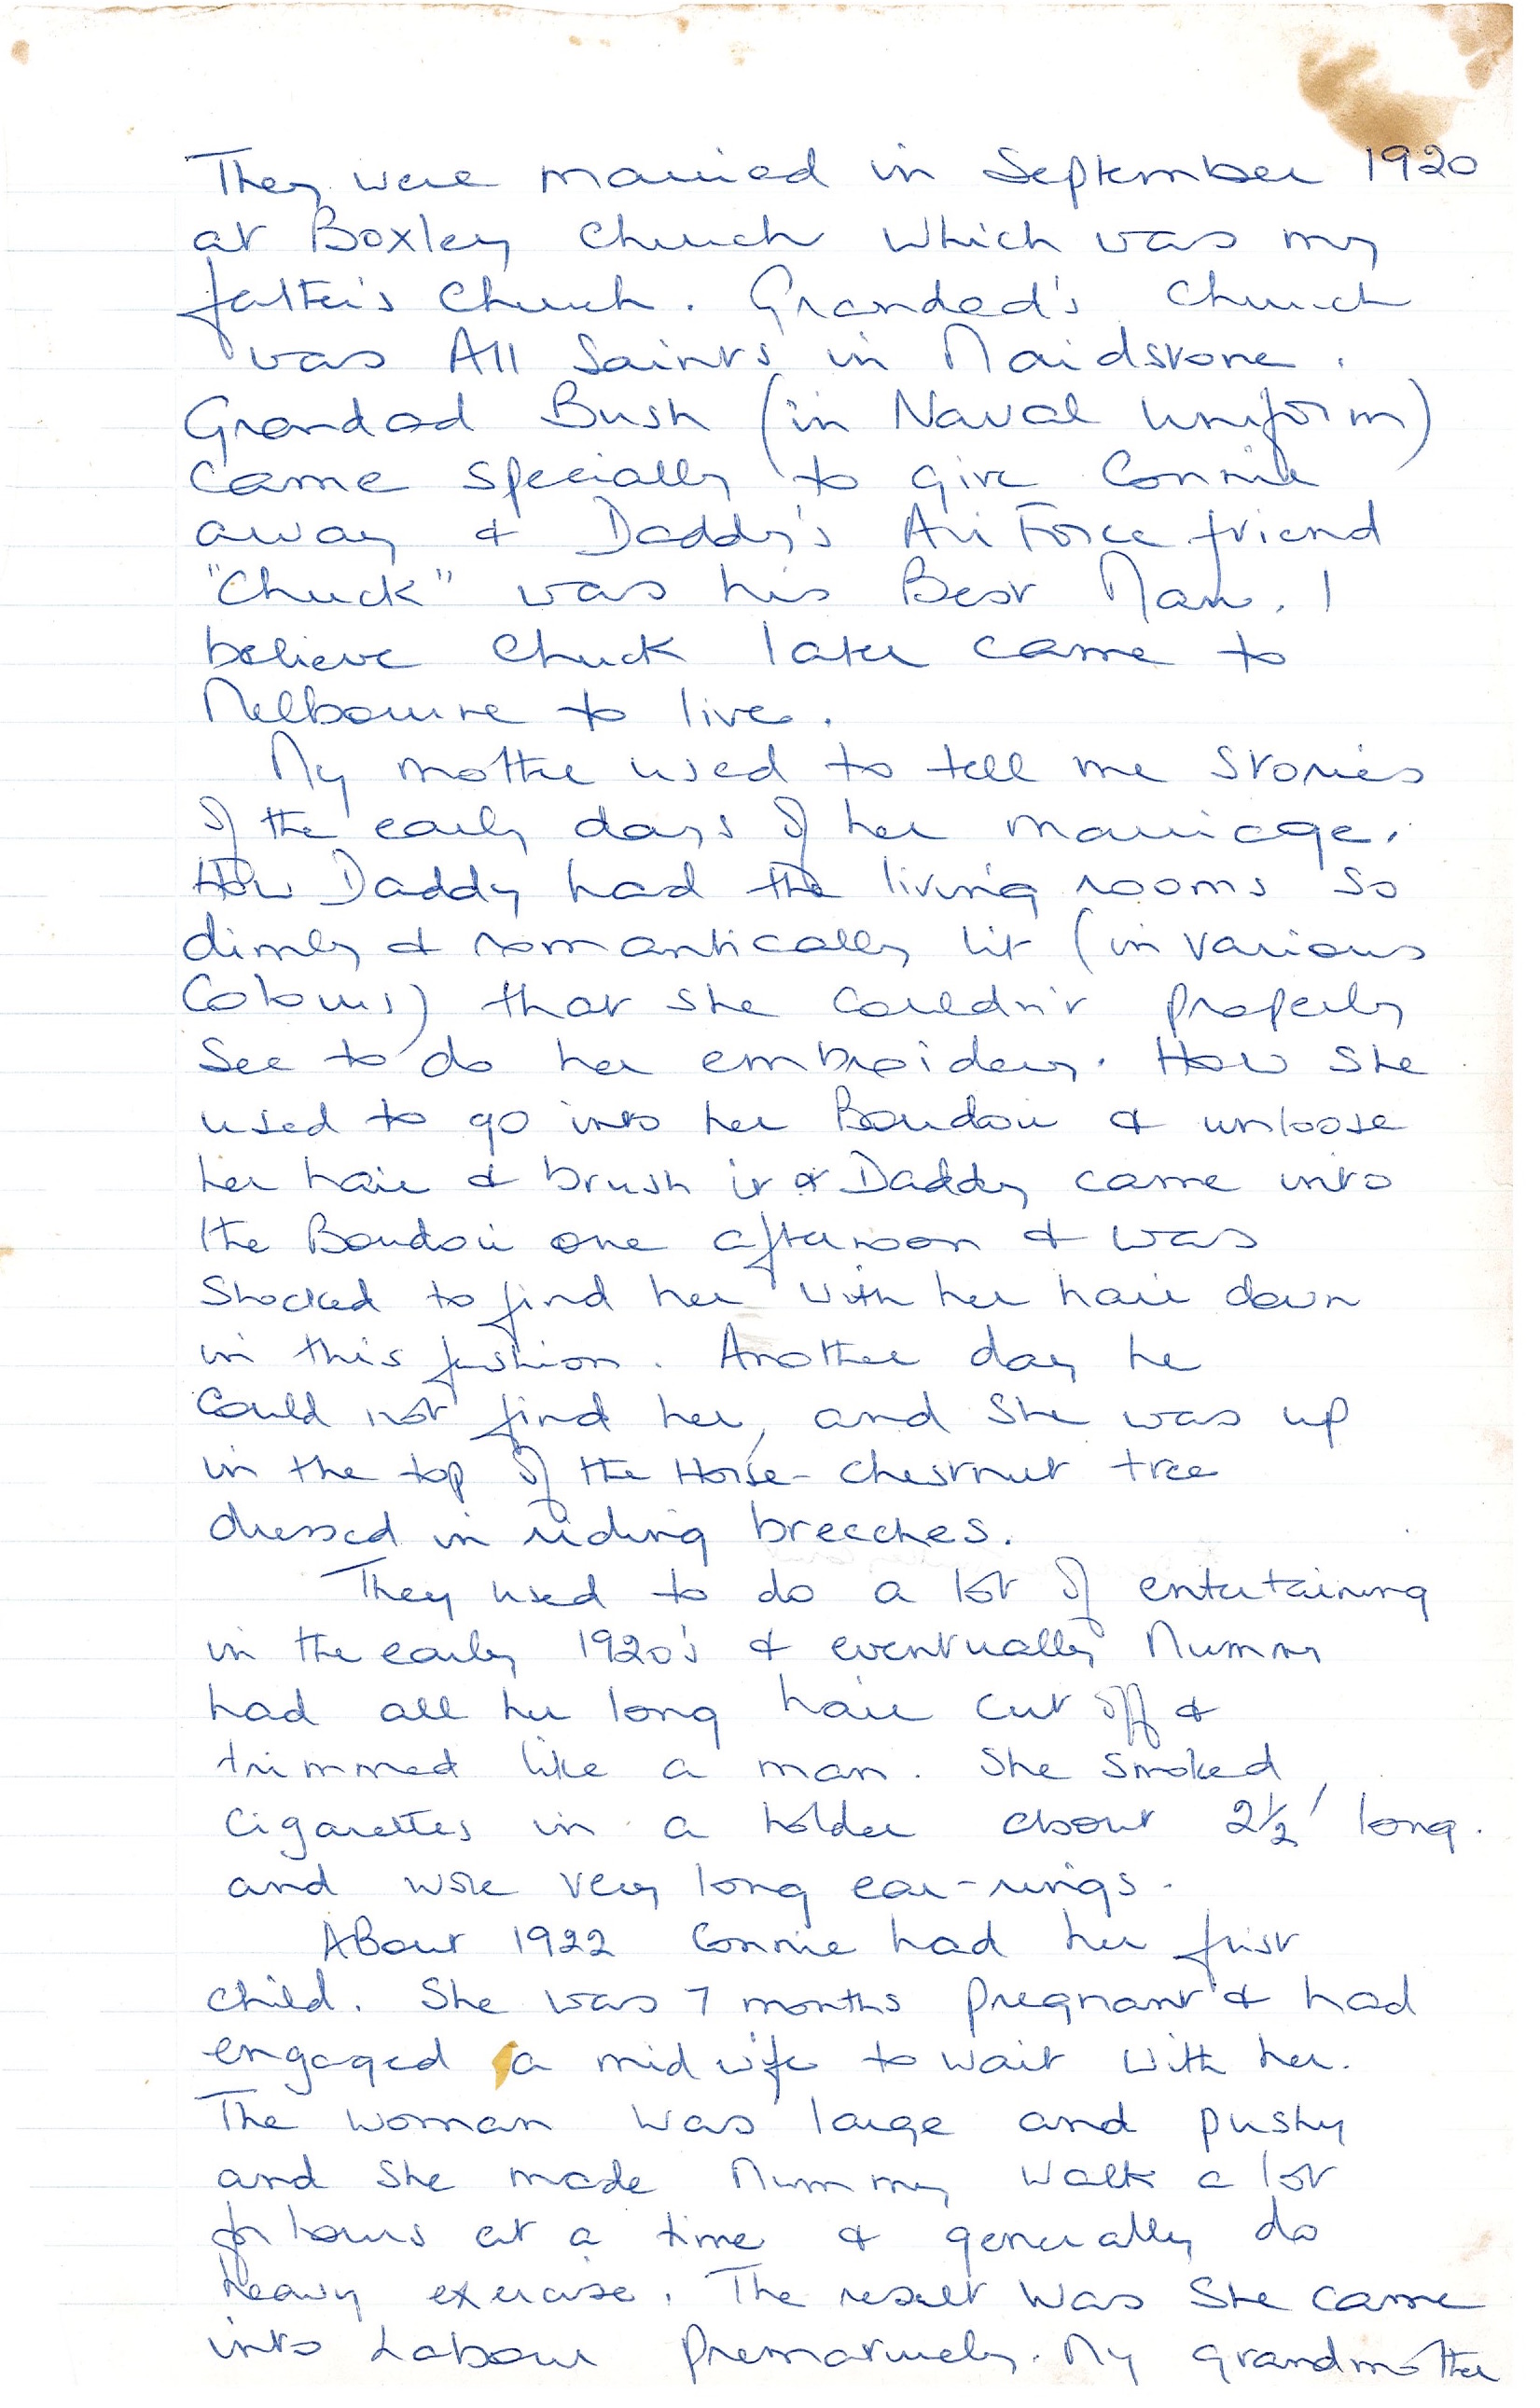 They were married in September 1920
at Boxley Church which was my
father's Church. Grandad's Church
was All Saints in Maidstone.
Grandad Bush (in Naval Uniform)
came specially to give Connie
away & Daddy's Air Force friend
"Chuck" was his Best Man. I
believe Chuck later came to
Melbourne to live.
My mother used to tell me stories
of the early days of her marriage.
How Daddy had the living rooms so
dimly & romantically lit (in various
Colours) that she couldn't properly
see to do her embroidery. How she
used to go into her Boudoir & unloose
her hair & brush it & Daddy came into
the Boudoir one afternoon & was
shocked to find her with her hair down
in this fashion. Another day he
could not find her, and she was up
in the top of the Horse-chestnut tree
dressed in riding breeches.
They used to do a lot of entertaining
in the early 1920's & eventually Mummy
had all her long hair cut off &
trimmed like a man. She smoked
cigarettes in a holder about 2½' long.
and wore very long ear-rings.
ABout 1922 Connie had her first
child. She was 7 months pregnant & had
engaged a midwife to wait with her.
The woman was large and pushy
and she made Mummy walk a lot
for hours at a time & generally do
heavy exercise. The result was she came
into Labour prematurely. My grandmother